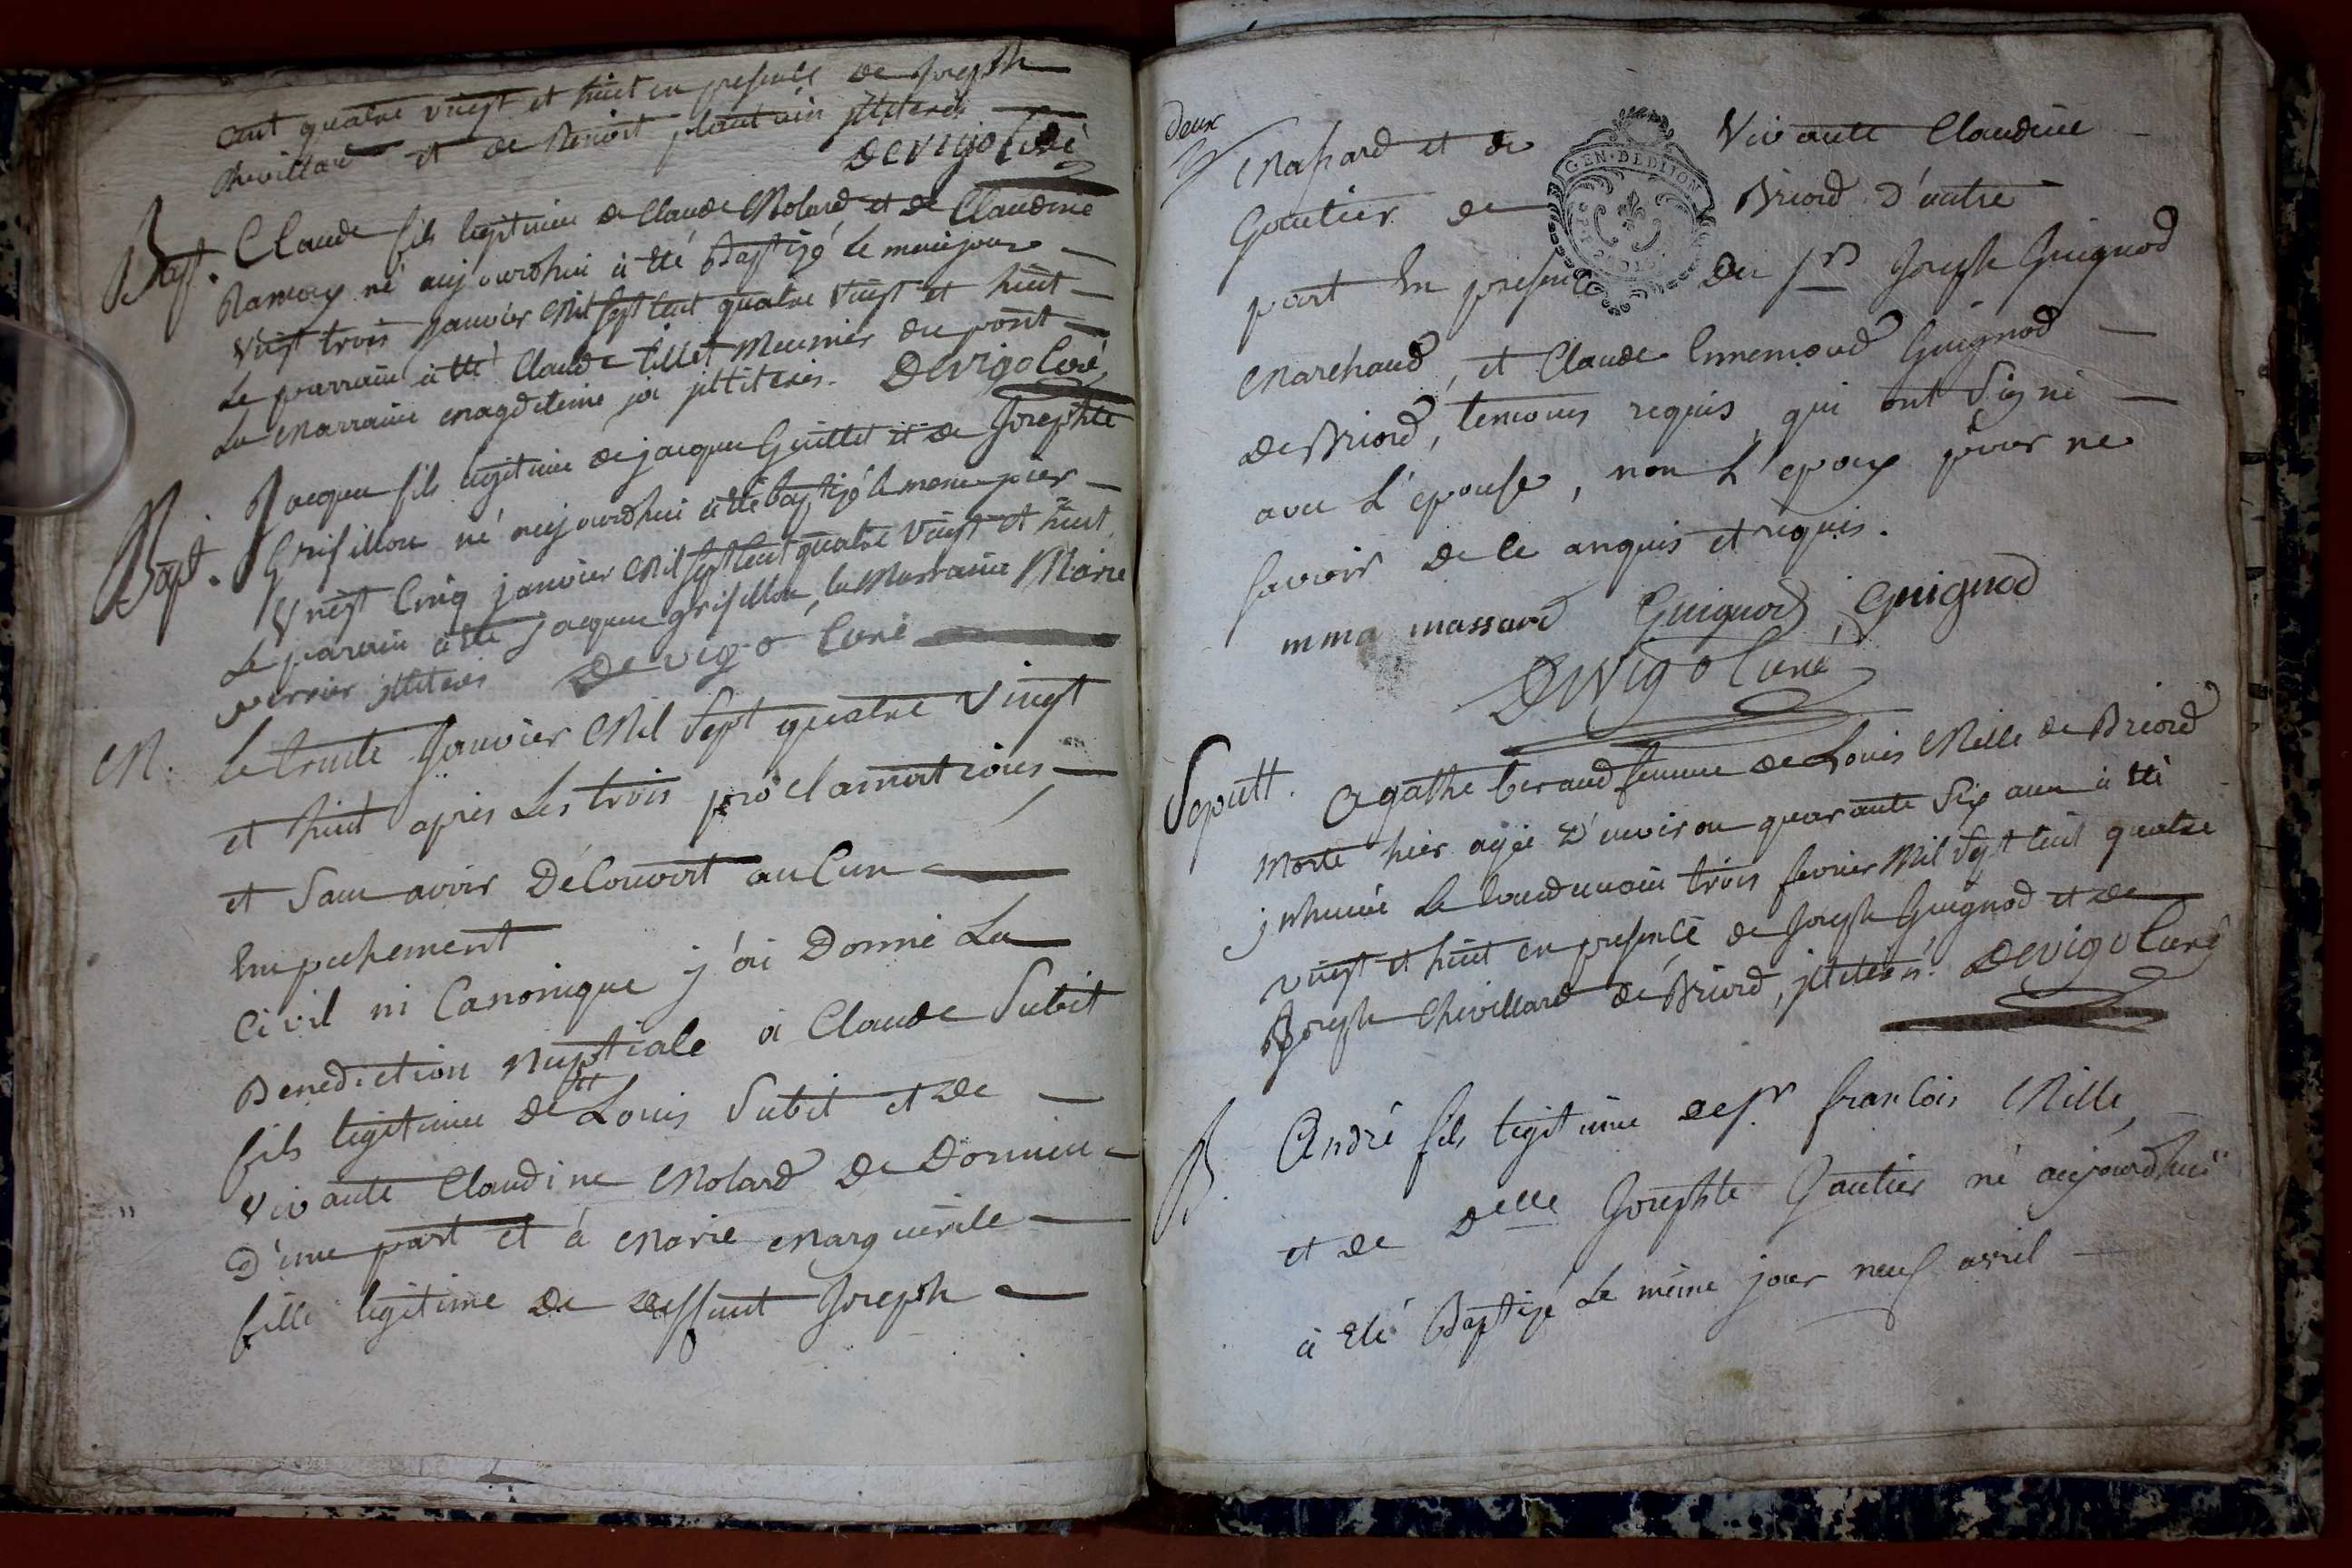 cent quatre vingt et huit en presence de Joseph
Chevillard et de Benoit plantain jlliterés
Devigo Curé
Bapt. Claude fils legitime de Claude Molard et de Claudine
Ramay né aujourdhui à été Baptizé le meme jour
vingt trois janvier Mil sept cent quatre vingt et huit
Le parrain à été Claude tillet Meunier du pont
La Marraine magdeleine joi jlliterés. Devigo Curé
Bapt. Jacque fils legitime de jacque Guillet et de Josephte
Grisillon né aujourdhui à été baptizé le meme jour
vingt Cinq janvier Mil sept cent quatre vingt et huit
Le parain à été jacque grisillon, la Marraine Marie
perrier jlliterés Devigo Curé
M. Le trente Janvier Mil Sept quatre vingt
et huit après Les trois proclamations
et Sans avoir DéCouvert auCun
Empechement
Civil ni Canonique j'ai Donné La
Benediction Nuptiale à Claude Subit
fils legitime de tt Louis Subit et de
vivante Claudine Molard de Dornieu
D'une part et à Marie Marguerite
fille legitime de deffunt Joseph
deux
Massard et de vivante Claudine
Gautier de Briord D'autre
part En presence du Sr Joseph Guignod
Marchand, et Claude Ennemond Guignod
de Briord, temoins requis, qui ont Signé
avec L'epouse, non L'epoux pour ne
savoir de ce anquis et requis.
mma massard Guignod Guignod
Devigo Curé
GEN·DE DIJON
Sepult. Agathe beraud femme de Louis Mille de Briord
Morte hier agée D'environ quarante Six ans à été
jnhumée Le landemain trois fevrier Mil Sept cent quatre
vingt et huit en presence de Joseph Guignod et de
Joseph Chevillard de Briord, jlliterés. Devigo Curé
B. André fils legitime de Sr franCois Mille
et de Delle Josephte Gautier né aujourdhui
à été Baptizé Le même jour neuf avril